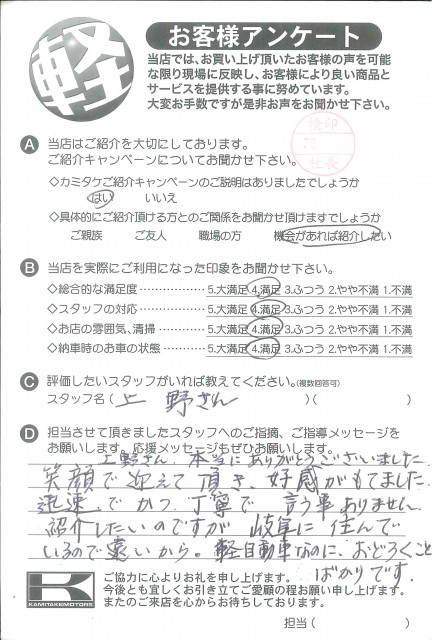 軽
お客様アンケート
当店では、お買い上げ頂いたお客様の声を可能
な限り現場に反映し、お客様により良い商品と
サービスを提供する事に努めています。
大変お手数ですが是非お声をお聞かせ下さい。
検印
社長
A 当店はご紹介を大切にしております。
ご紹介キャンペーンについてお聞かせ下さい。
◇カミタケご紹介キャンペーンのご説明はありましたでしょうか
はい いいえ
◇具体的にご紹介頂ける方とのご関係をお聞かせ頂けますでしょうか
ご親族 ご友人 職場の方 機会があれば紹介したい
B 当店を実際にご利用になった印象をお聞かせ下さい。
◇総合的な満足度……………… 5.大満足 4.満足 3.ふつう 2.やや不満 1.不満
◇スタッフの対応……………… 5.大満足 4.満足 3.ふつう 2.やや不満 1.不満
◇お店の雰囲気、清掃………… 5.大満足 4.満足 3.ふつう 2.やや不満 1.不満
◇納車時のお車の状態………… 5.大満足 4.満足 3.ふつう 2.やや不満 1.不満
C 評価したいスタッフがいれば教えてください。(複数回答可)
スタッフ名( 上野さん )( )
D 担当させて頂きましたスタッフへのご指摘、ご指導メッセージを
お願いします。応援メッセージもぜひお願いします。
上野さん、本当にありがとうございました。
笑顔で迎えて頂き、好感がもてました。
迅速でかつ、丁寧で 言う事ありません。
紹介したいのですが 岐阜に住んで
いるので遠いから。軽自動車なのに、おどろくこと
ばかりです。
K
KAMITAKEMOTORS
ご協力に心よりお礼を申し上げます。
今後とも宜しくお引き立てご愛顧の程お願い申し上げます。
またのご来店を心からお待ちしております。
担当( )